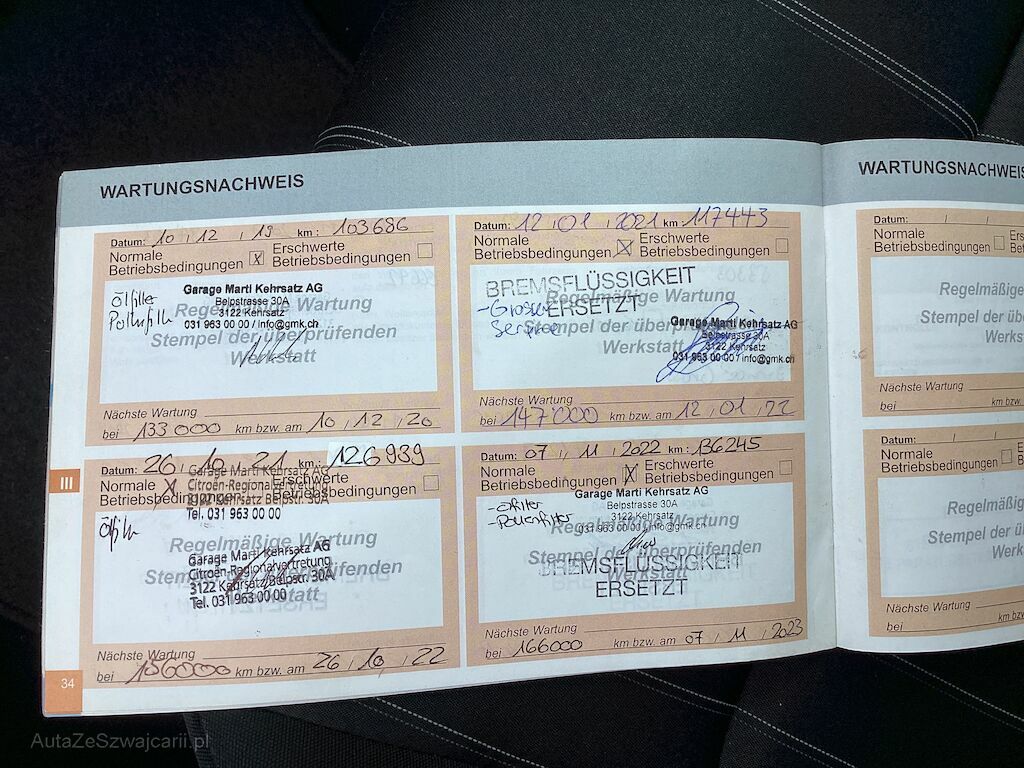 WARTUNGSNACHWEIS
Datum: 10 / 12 / 19 km: 103686
Normale Betriebsbedingungen X
Erschwerte Betriebsbedingungen
Ölfilter
Pollenfilter
Garage Marti Kehrsatz AG
Belpstrasse 30A
3122 Kehrsatz
031 963 00 00 / info@gmk.ch
Regelmäßige Wartung
Stempel der überprüfenden
Werkstatt
Nächste Wartung
bei 133000 km bzw. am 10 / 12 / 20
Datum: 12 / 01 / 2021 km: 117443
Normale Betriebsbedingungen X
Erschwerte Betriebsbedingungen
BREMSFLÜSSIGKEIT
ERSETZT
- Grosser
Service
Regelmäßige Wartung
Stempel der überprüfenden
Werkstatt
Garage Marti Kehrsatz AG
Belpstrasse 30A
3122 Kehrsatz
031 963 00 00 / info@gmk.ch
Nächste Wartung
bei 147000 km bzw. am 12 / 01 / 22
Datum: 26 / 10 / 21 km: 126989
Normale Betriebsbedingungen X
Erschwerte Betriebsbedingungen
Garage Marti Kehrsatz AG
Citroën-Regionalvertretung
3122 Kehrsatz Belpstr. 30A
Tel. 031 963 00 00
Regelmäßige Wartung
Stempel der überprüfenden
Werkstatt
Garage Marti Kehrsatz AG
Citroën-Regionalvertretung
3122 Kehrsatz/Belpstr. 30A
Tel. 031 963 00 00
Nächste Wartung
bei 156000 km bzw. am 26 / 10 / 22
Datum: 07 / 11 / 2022 km: 136245
Normale Betriebsbedingungen X
Erschwerte Betriebsbedingungen
- Ölfilter
- Pollenfilter
Garage Marti Kehrsatz AG
Belpstrasse 30A
3122 Kehrsatz
031 963 00 00 / info@gmk.ch
Regelmäßige Wartung
Stempel der überprüfenden
Werkstatt
BREMSFLÜSSIGKEIT
ERSETZT
Nächste Wartung
bei 166000 km bzw. am 07 / 11 / 2023
III
34
WARTUNGSNACHWEIS
Datum: / /
Normale
Betriebsbedingungen
Regelmäßig
Stempel der
Werk
Nächste Wartung
bei km bzw.
Datum: / /
Normale
Betriebsbedingungen
Regelmäßig
Stempel der
Werk
Nächste Wartung
bei km bzw.
AutaZeSzwajcarii.pl